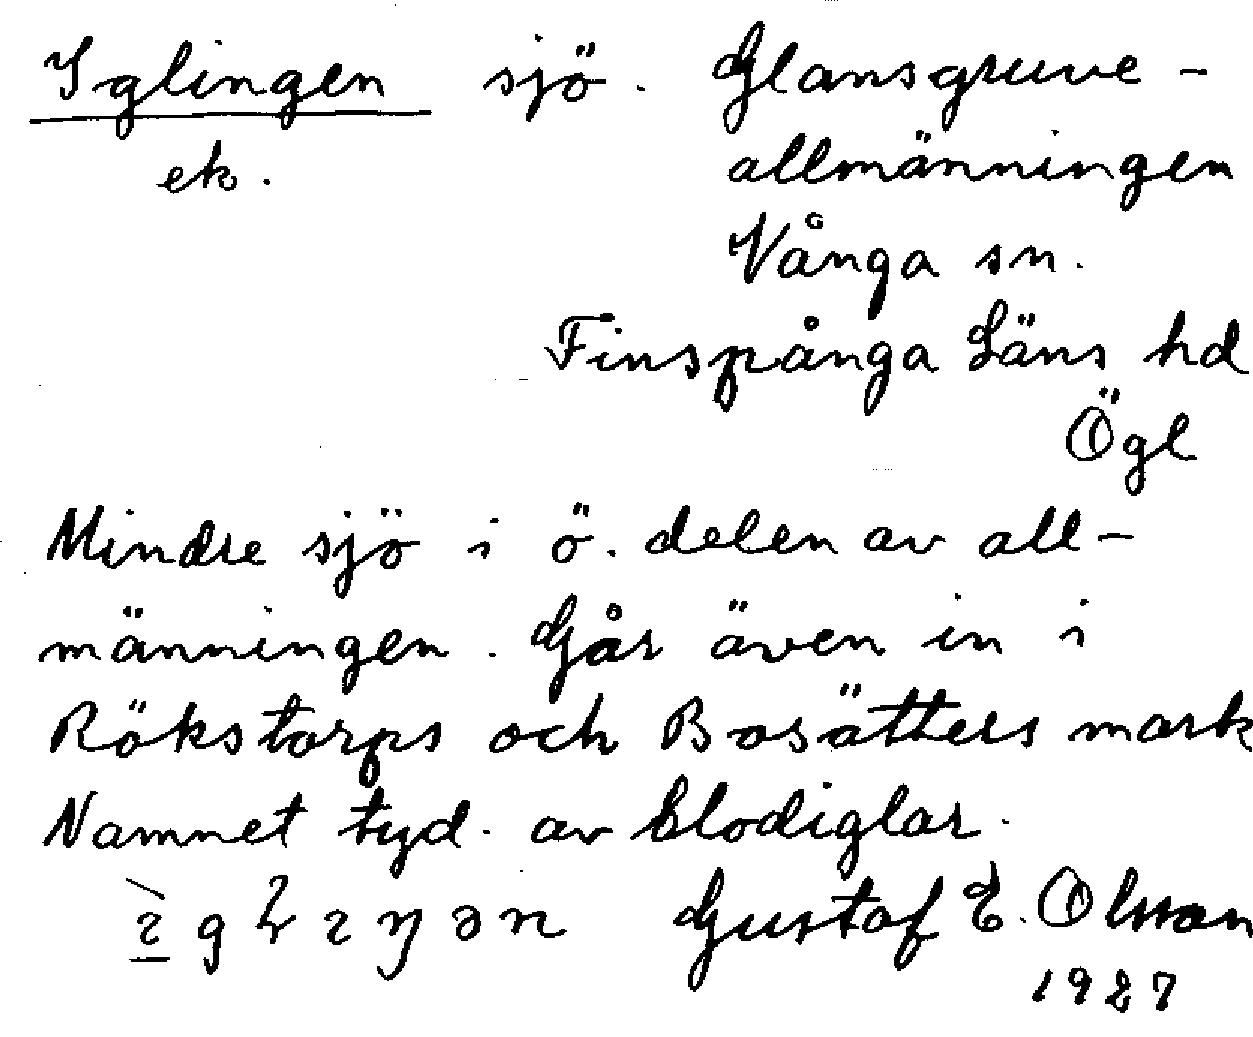 Iglingen sjö. Glansgruve-
ek. allmänningen
Vånga sn.
Finspånga Läns hd
Ögl
Mindre sjö i ö. delen av all-
männingen. Går även in i
Rökstorps och Bosätters mark
Namnet tyd. av blodiglar.
Gustaf E. Olsson
1927